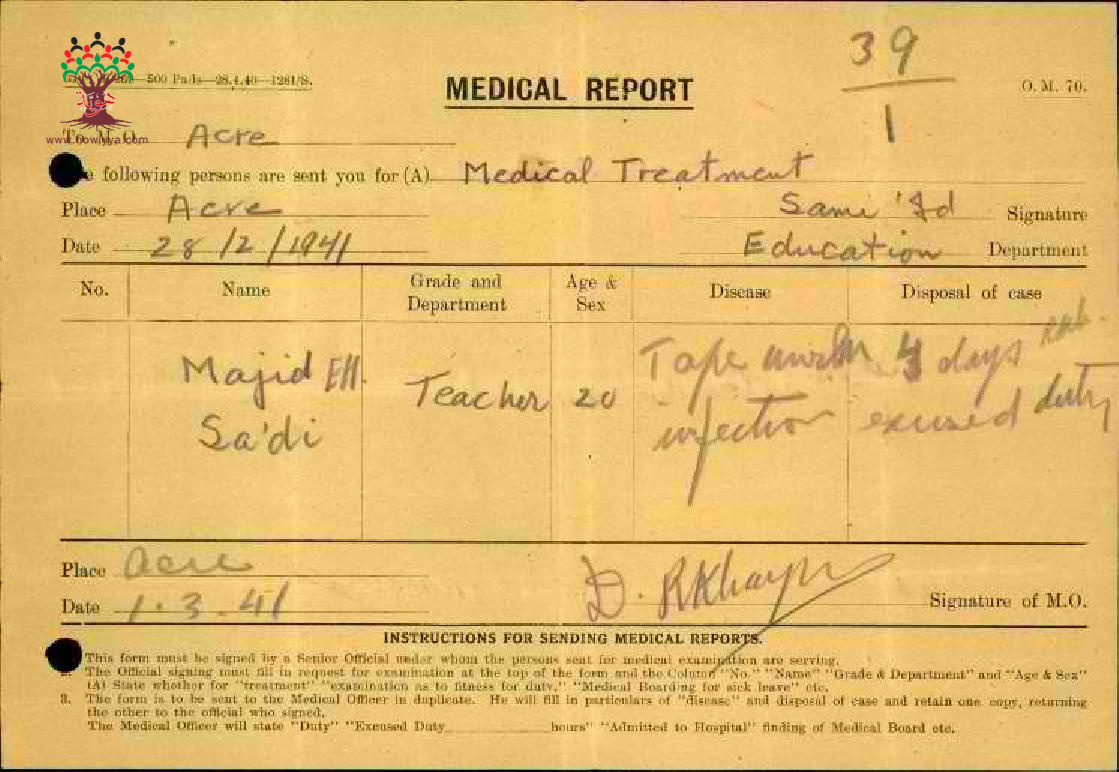 500 Pads—28.4.40—1281/S.
MEDICAL REPORT
39
1
O.M. 70.
To M.O. Acre
www.howiyya.com
following persons are sent you for (A) Medical Treatment
Place Acre
Sami 'Id Signature
Date 28/2/1941
Education Department
No. Name Grade and Department Age & Sex Disease Disposal of case
Majid Ell. Teacher 20 Tape worm 4 days
Sa'di infection excused duty
Place Acre
Date 1.3.41
D. Signature of M.O.
INSTRUCTIONS FOR SENDING MEDICAL REPORTS.
This form must be signed by a Senior Official under whom the persons sent for medical examination are serving.
The Official signing must fill in request for examination at the top of the form and the Column "No." "Name" "Grade & Department" and "Age & Sex"
(A) State whether for "treatment" "examination as to fitness for duty," "Medical Boarding for sick leave" etc.
3. The form is to be sent to the Medical Officer in duplicate. He will fill in particulars of "disease" and disposal of case and retain one copy, returning
the other to the official who signed.
The Medical Officer will state "Duty" "Excused Duty____________hours" "Admitted to Hospital" finding of Medical Board etc.